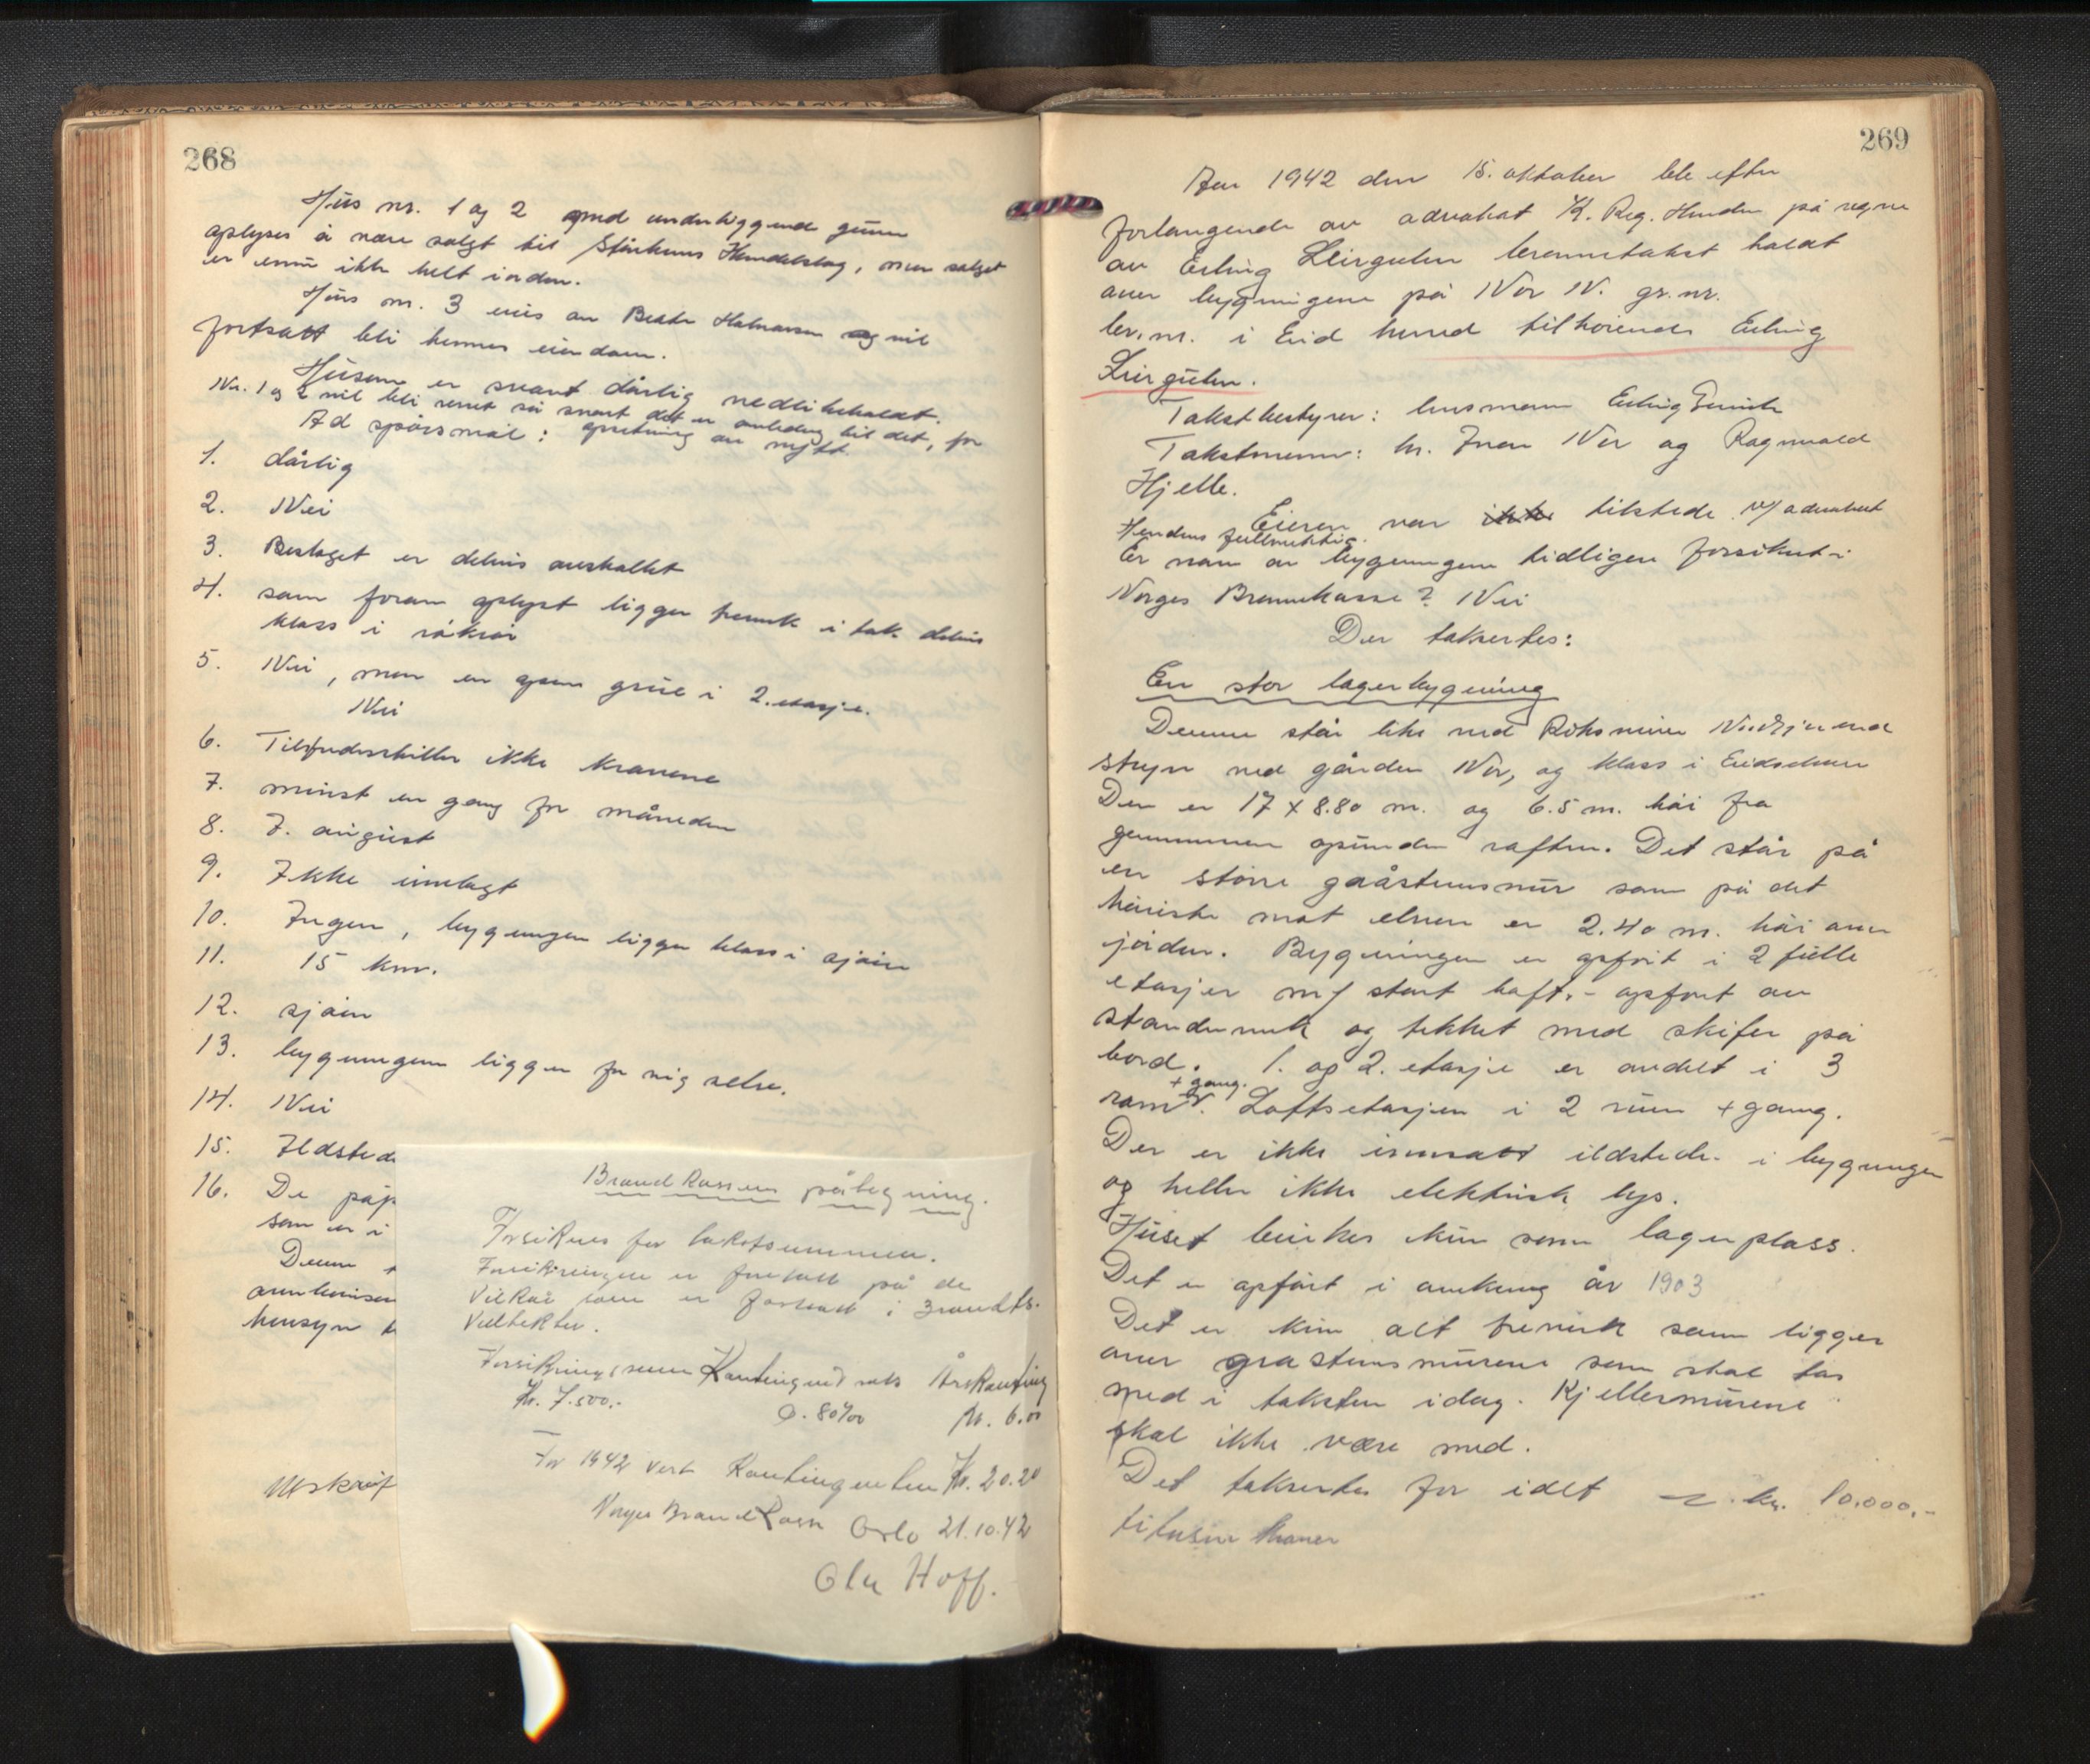 268
Hus nr. 1 og 2 med underliggende grunn
oplyses å være solgt til Stårheims Handelslag, men salget
er ennu ikke helt i orden.
Hus nr. 3 eies av Beate Halvorsen og vil
fortsatt bli hennes eiendom.
Husene er svært dårlig vedlikeholdt.
Nr. 1 og 2 vil bli revet så snart det er anledng til det, for
opsetning av nytt.
Ad spørsmål:
1. dårlig
2. Nei
3. Beslaget er delvis avskallet
4. som foran oplyst ligger treverk i tak delvis
kloss i røkrør
5. Nei, men en åpen grue i 2. etasje.
Nei
6. Tilfredsstiller ikke kravene
7. minst en gang pr måneden
8. 7. august
9. Ikke innlagt
10. Ingen, bygningen ligger kloss i sjøen
11. 15 km.
12. sjøen
13. bygningene ligger for sig selv.
14. Nei
15. Ildsted
16. De påp
som er i
Denne
hensyn
Utskrift
Brandkassens påtegning.
Forsikres for takstsummen.
Forsikringen er fortsatt på de
Vilkår som er fastsatt i Brandks.
Vedtekter.
Forsikringssum Kontingent sats Årskonting
Kr. 7.500.- 0.80‰ Kr. 6.00
For 1942 vert Kontingenten Kr. 20.20
Norges Brandkasse Oslo 21.10.42
Ola Hoff.
269
Aar 1942 den 15. oktober ble efter
forlangende av advokat K. Reg. Henden på vegne
av Erling Leirgulen brannetakst holdt
over bygningene på Nor IV. gr.nr.
br.nr. i Eid herred tilhørende Erling
Leirgulen.
Takstbestyrer: lensmann Erling
Takstmenn: hr. Ivar Nor og Ragnvald
Hjelle.
Eieren var ikke tilstede v/advokat
Hendens fullmektig.
Er noen av bygningene tidligere forsikret i
Norges Brannekasse? Nei
Der taksertes:
En stor lagerbygning
Denne står like ved Riksveien Nordfjordeid
Stryn ved gården Nor, og kloss i Eidselven
Den er 17 x 8.80 m. og 6.5 m. høi fra
grunnmuren opunder raften. Det står på
en større gråstensmur som på det
høieste mot elven er 2.40 m. høi over
jorden. Bygningen er opført i 2 fulle
etasjer m/ stort loft, - opført av
standerverk og tekket med skifer på
bord. 1. og 2. etasje er avdelt i 3
rom + gang. Loftsetasjen i 2 rum + gang.
Der er ikke innsatt ildsteder i bygningen
og heller ikke elektrisk lys.
Huset brukes kun som lagerplass.
Det er opført i omkring år 1903
Det er kun alt treverk som ligger
over grastensmurene som skal tas
med i taksten idag. Kjellermurene
skal ikke være med.
Det taksertes for idet ~ kr. 10.000,-
titusen kroner